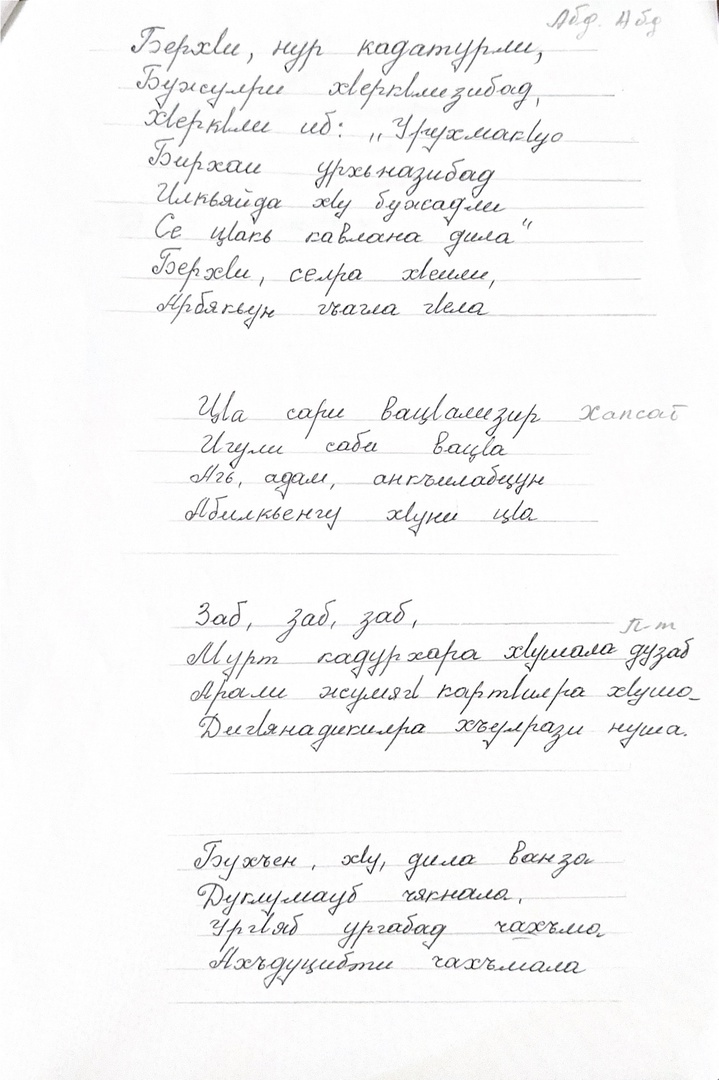 Абд. Абд
Берхӏи, нур кадатурли,
Бужулри хӏеркӏлизибад,
Хӏеркӏли иб: „Урухмакӏуо
Бирхаи урхьназибад
Илкьяйда хӏу бужадли
Се цӏакь кавлана дила"
Берхӏи, селра хӏеили,
Арбякьун гъагла гӏела
Цӏа сари вацӏализир Хапсат
Игули саби вацӏа
Агь, адам, анкъилабцун
Абилкьенгу хӏуни цӏа
Заб, заб, заб,
П-т
Мурт кадурхара хӏушала дузаб
Арали жумягӏ картӏилра хӏушо
Дигӏянадикилра хъулрази нуша.
Бухъен, хӏу, дила ванза
Дуклумауб чякнала,
Ургӏяб ургабад чахъма
Ахъдуцибти чахъмала